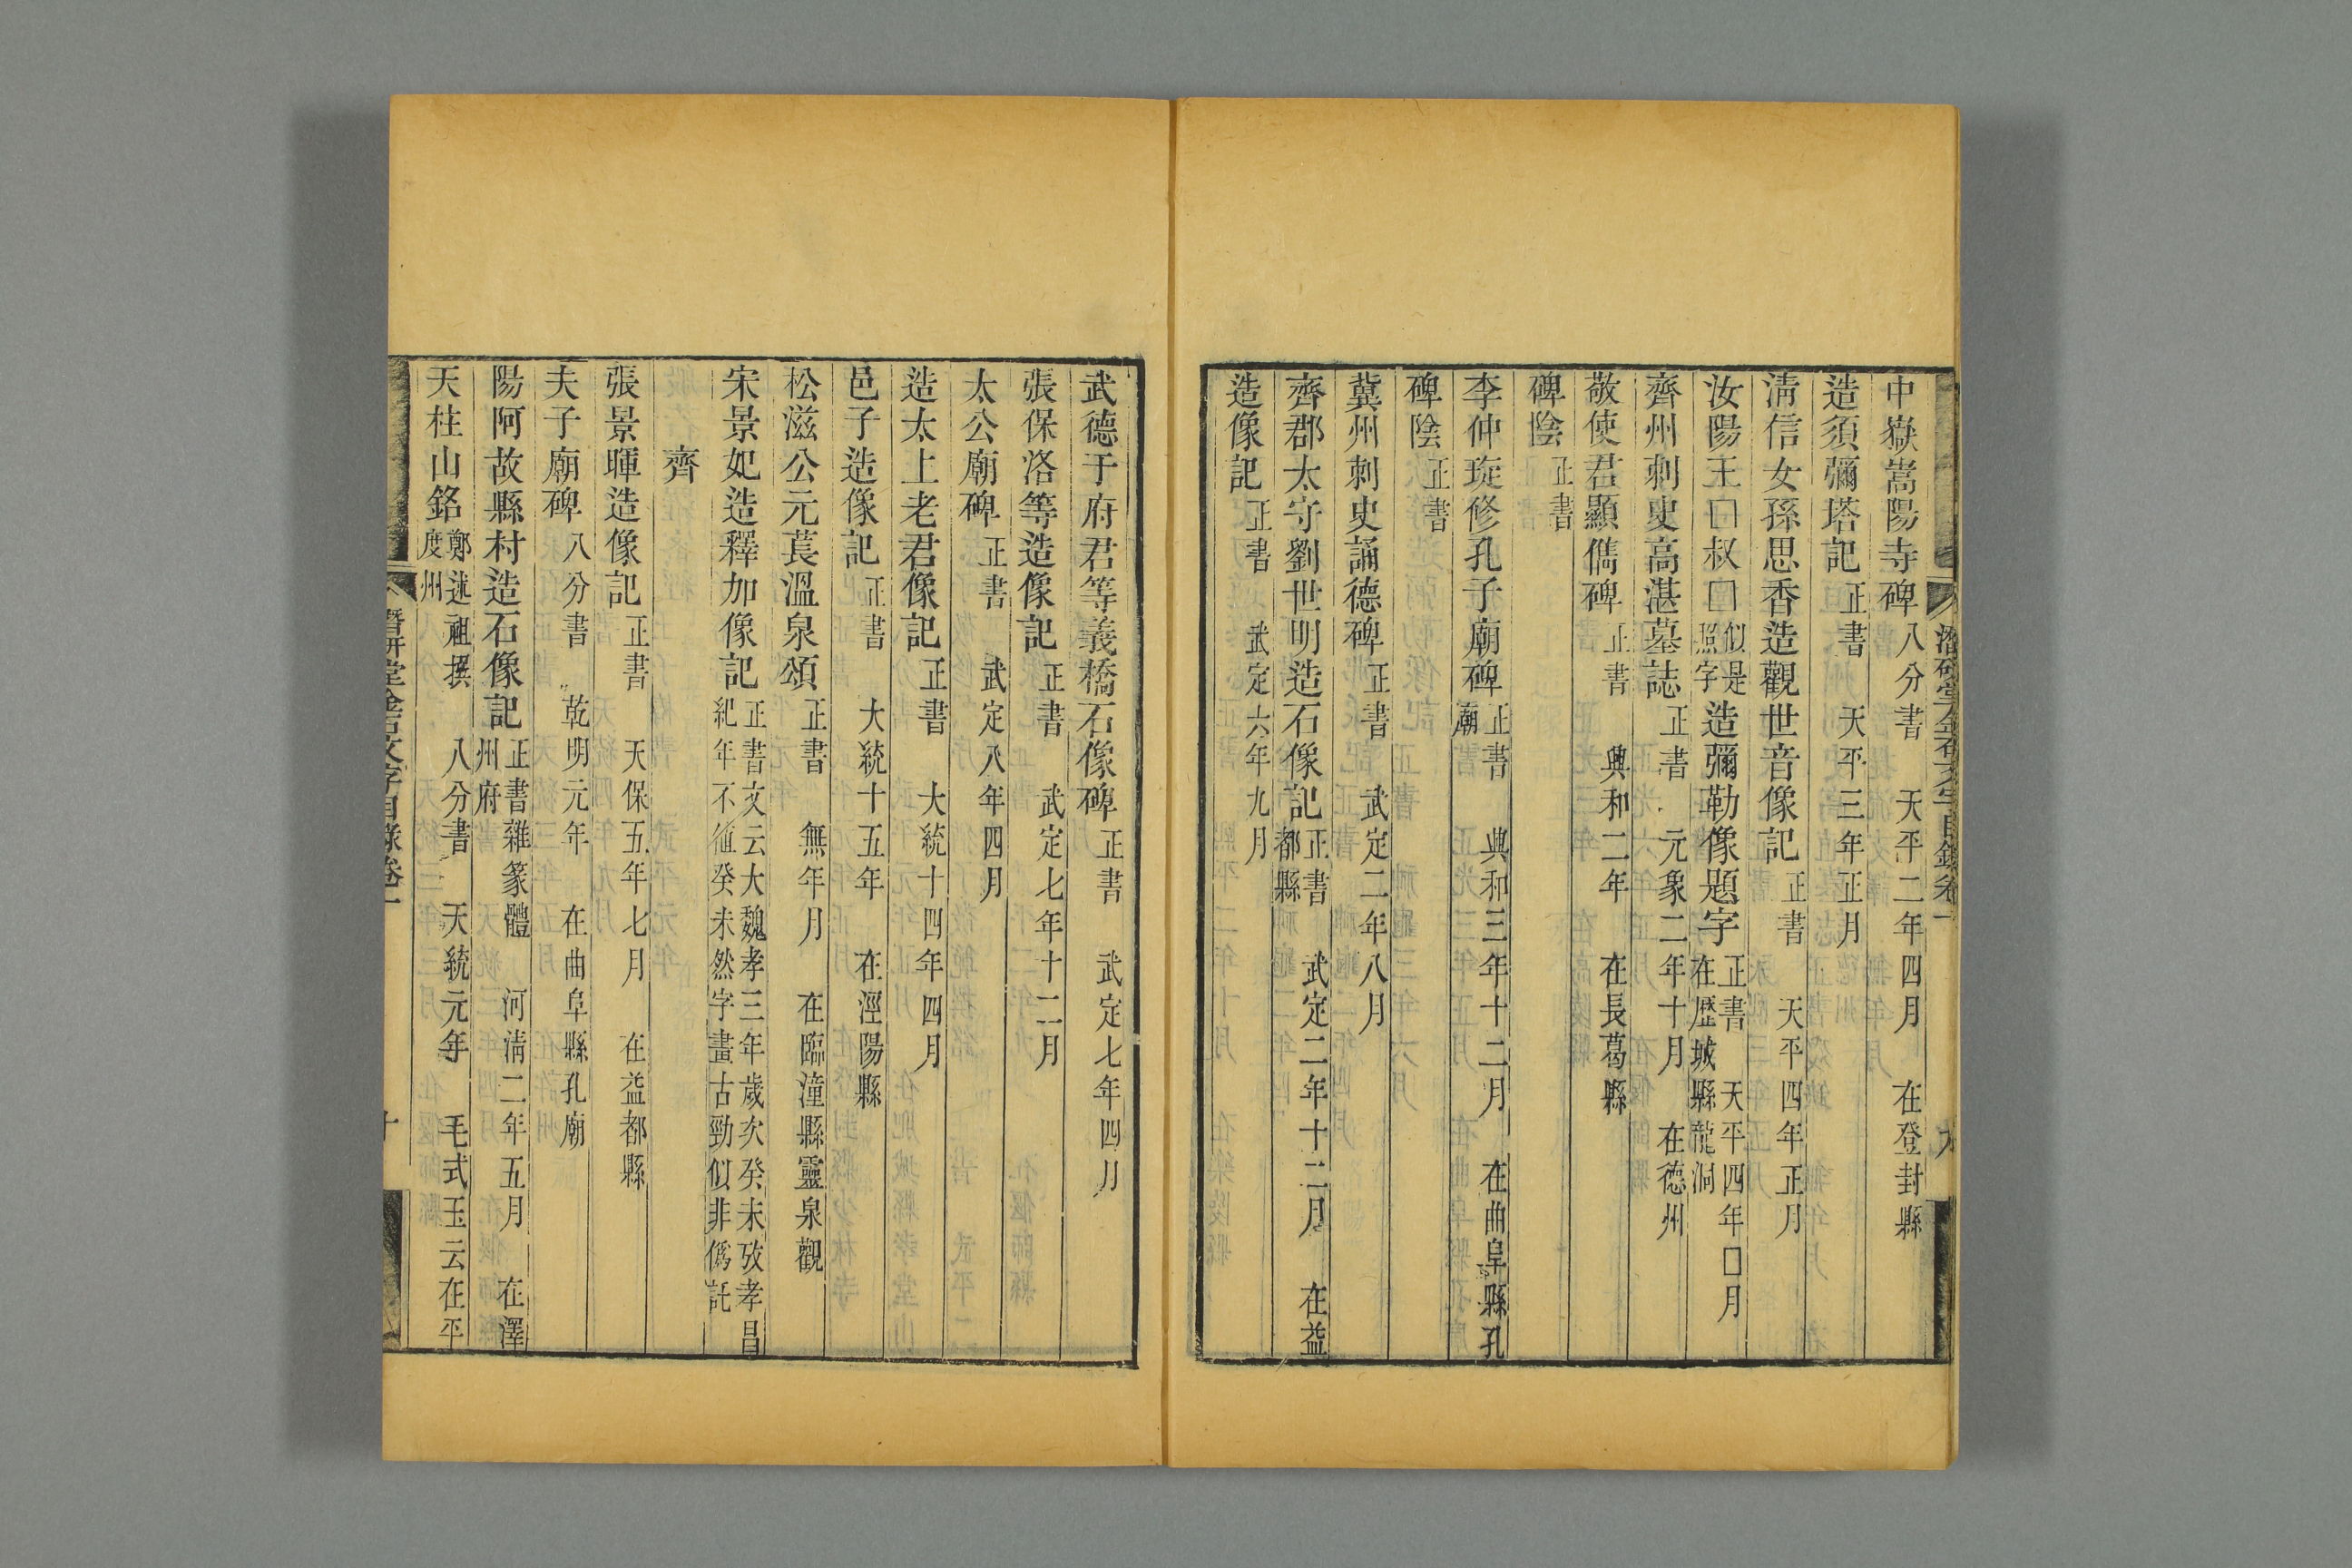 潛研堂金石文字目錄卷一 九
中嶽嵩陽寺碑 八分書 天平二年四月 在登封縣
造須彌塔記 正書 天平三年正月
清信女孫思香造觀世音像記 正書 天平四年正月
汝陽王□叔□似是照字造彌勒像題字 正書 天平四年□月 在歷城縣龍洞
齊州刺史高湛墓誌 正書 元象二年十月 在德州
敬使君顯儁碑 正書 興和二年 在長葛縣
碑陰 正書
李仲琁修孔子廟碑 正書 興和三年十二月 在曲阜縣孔廟
碑陰 正書
冀州刺史誦德碑 正書 武定二年八月
齊郡太守劉世明造石像記 正書 武定二年十二月 在益都縣
造像記 正書 武定六年九月
武德于府君等義橋石像碑 正書 武定七年四月
張保洛等造像記 正書 武定七年十二月
太公廟碑 正書 武定八年四月
造太上老君像記 正書 大統十四年四月
邑子造像記 正書 大統十五年 在涇陽縣
松滋公元萇溫泉頌 正書 無年月 在臨潼縣靈泉觀
宋景妃造釋加像記 正書文云大魏孝三年歲次癸未攷孝昌紀年不值癸未然字畫古勁似非僞託
齊
張景暉造像記 正書 天保五年七月 在益都縣
夫子廟碑 八分書 乾明元年 在曲阜縣孔廟
陽阿故縣村造石像記 正書雜篆體 河清二年五月 在澤州府
天柱山銘 鄭述祖撰 八分書 天統元年 毛式玉云在平度州
潛研堂金石文字目錄卷一 十